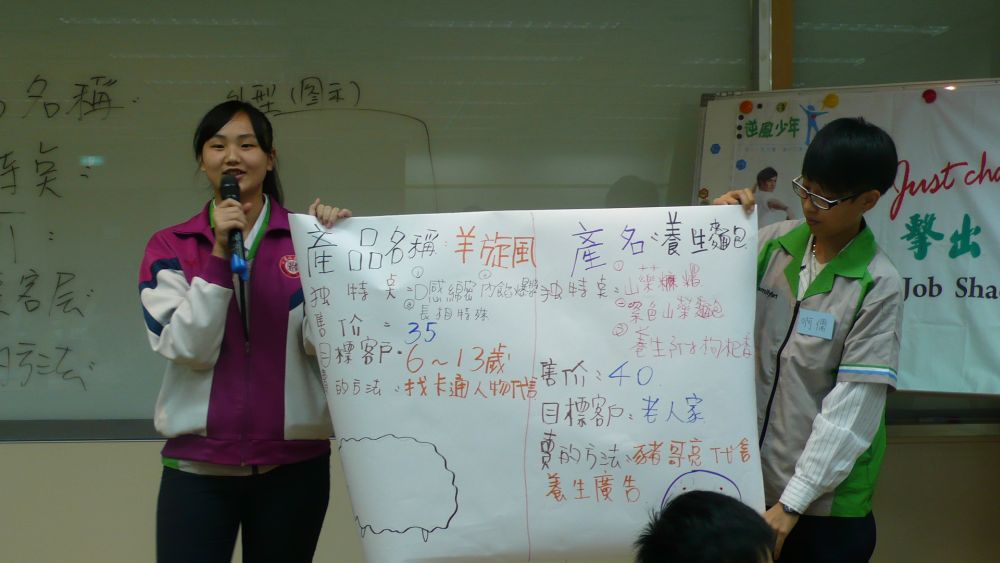 名稱:
外型(图示)
特矣:
客层:
方法:
產品名稱:羊旋風
独特矣:①口感綿密 ②內餡爆漿
③長相特殊
售价:35
目標客戶:6~13歲
賣的方法:找卡通人物代言
產名:養生麵包
独特矣:①山藥
②紫色山藥麵包
③養生
售价:40
目標客戶:老人家
賣的方法:豬哥亮代言
養生廣告
逆風少年
Just cha
擊出
Job Sha